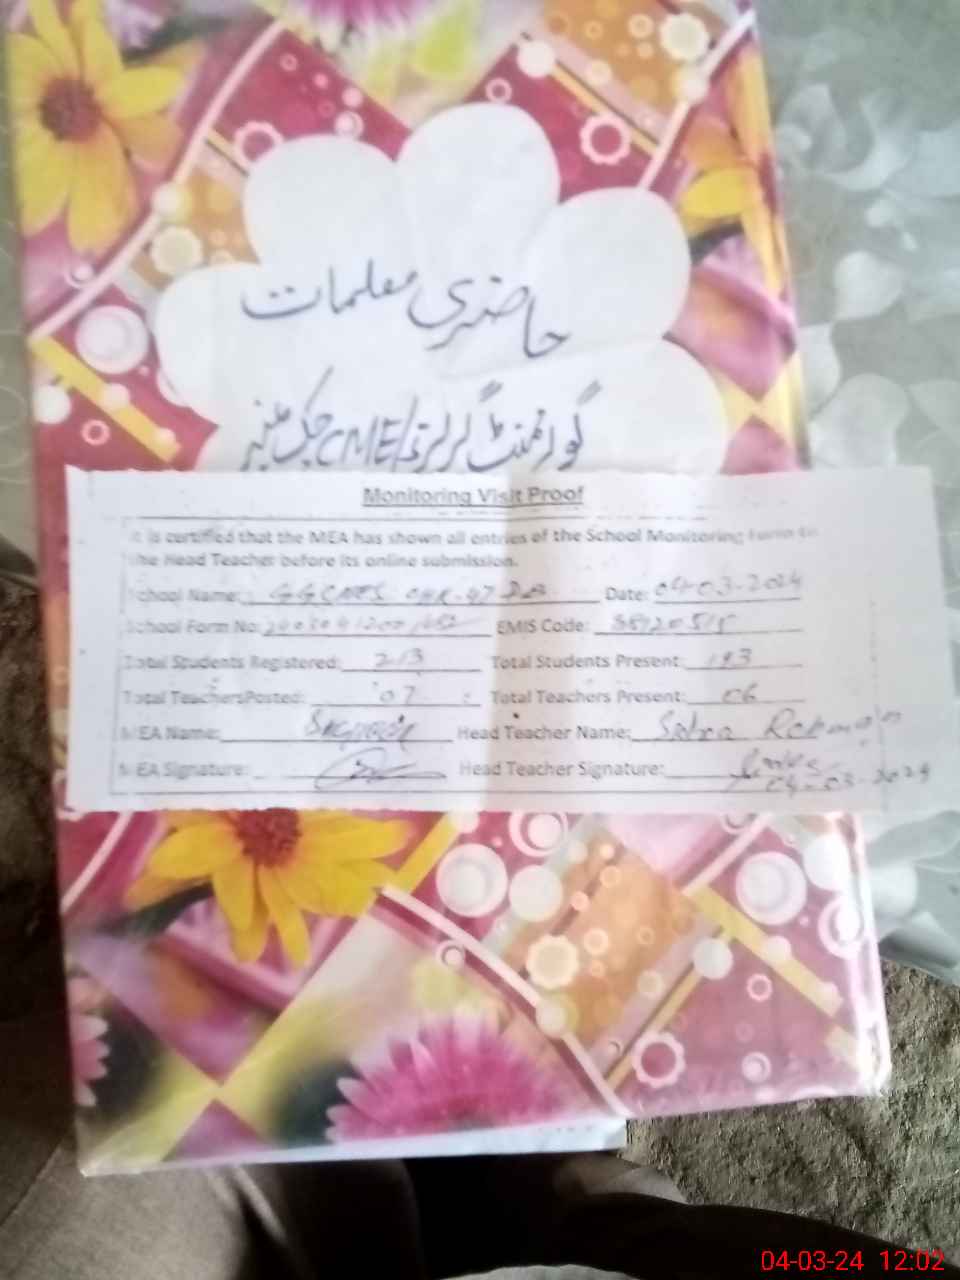 حاضری معلمات
گورنمنٹ گرلز CME/ چک نمبر
Monitoring Visit Proof
It is certified that the MEA has shown all entries of the School Monitoring Form to
the Head Teacher before its online submission.
School Name: GGCMES CHK-47 Date: 04-03-2024
School Form No: EMIS Code:
Total Students Registered: 213 Total Students Present: 193
Total TeachersPosted: 07 Total Teachers Present: 06
MEA Name: Head Teacher Name: Rehman
MEA Signature: Head Teacher Signature:
04-03-2024
04-03-24 12:02